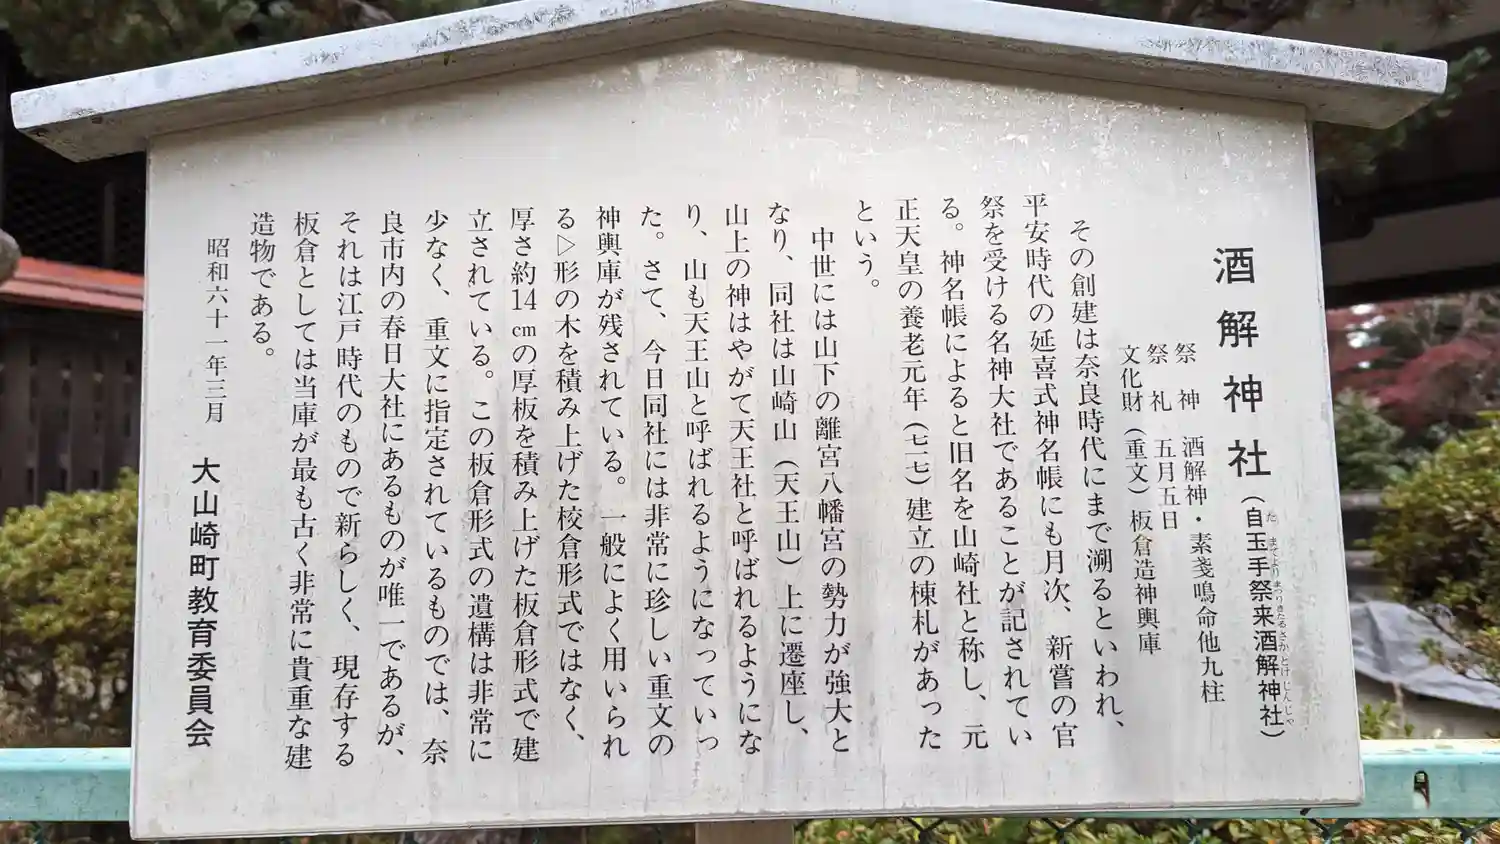 酒解神社(自玉手祭来酒解神社)
たまでよりまつりきたるさかとけじんじゃ
祭神 酒解神・素戔鳴命他九柱
祭礼 五月五日
文化財(重文)板倉造神輿庫
その創建は奈良時代にまで溯るといわれ、
平安時代の延喜式神名帳にも月次、新嘗の官
祭を受ける名神大社であることが記されてい
る。神名帳によると旧名を山崎社と称し、元
正天皇の養老元年(七一七)建立の棟札があった
という。
中世には山下の離宮八幡宮の勢力が強大と
なり、同社は山崎山(天王山)上に遷座し、
山上の神はやがて天王社と呼ばれるようにな
り、山も天王山と呼ばれるようになっていっ
た。さて、今日同社には非常に珍しい重文の
神輿庫が残されている。一般によく用いられ
る▷形の木を積み上げた校倉形式ではなく、
厚さ約14㎝の厚板を積み上げた板倉形式で建
立されている。この板倉形式の遺構は非常に
少なく、重文に指定されているものでは、奈
良市内の春日大社にあるものが唯一であるが、
それは江戸時代のもので新らしく、現存する
板倉としては当庫が最も古く非常に貴重な建
造物である。
昭和六十一年三月 大山崎町教育委員会